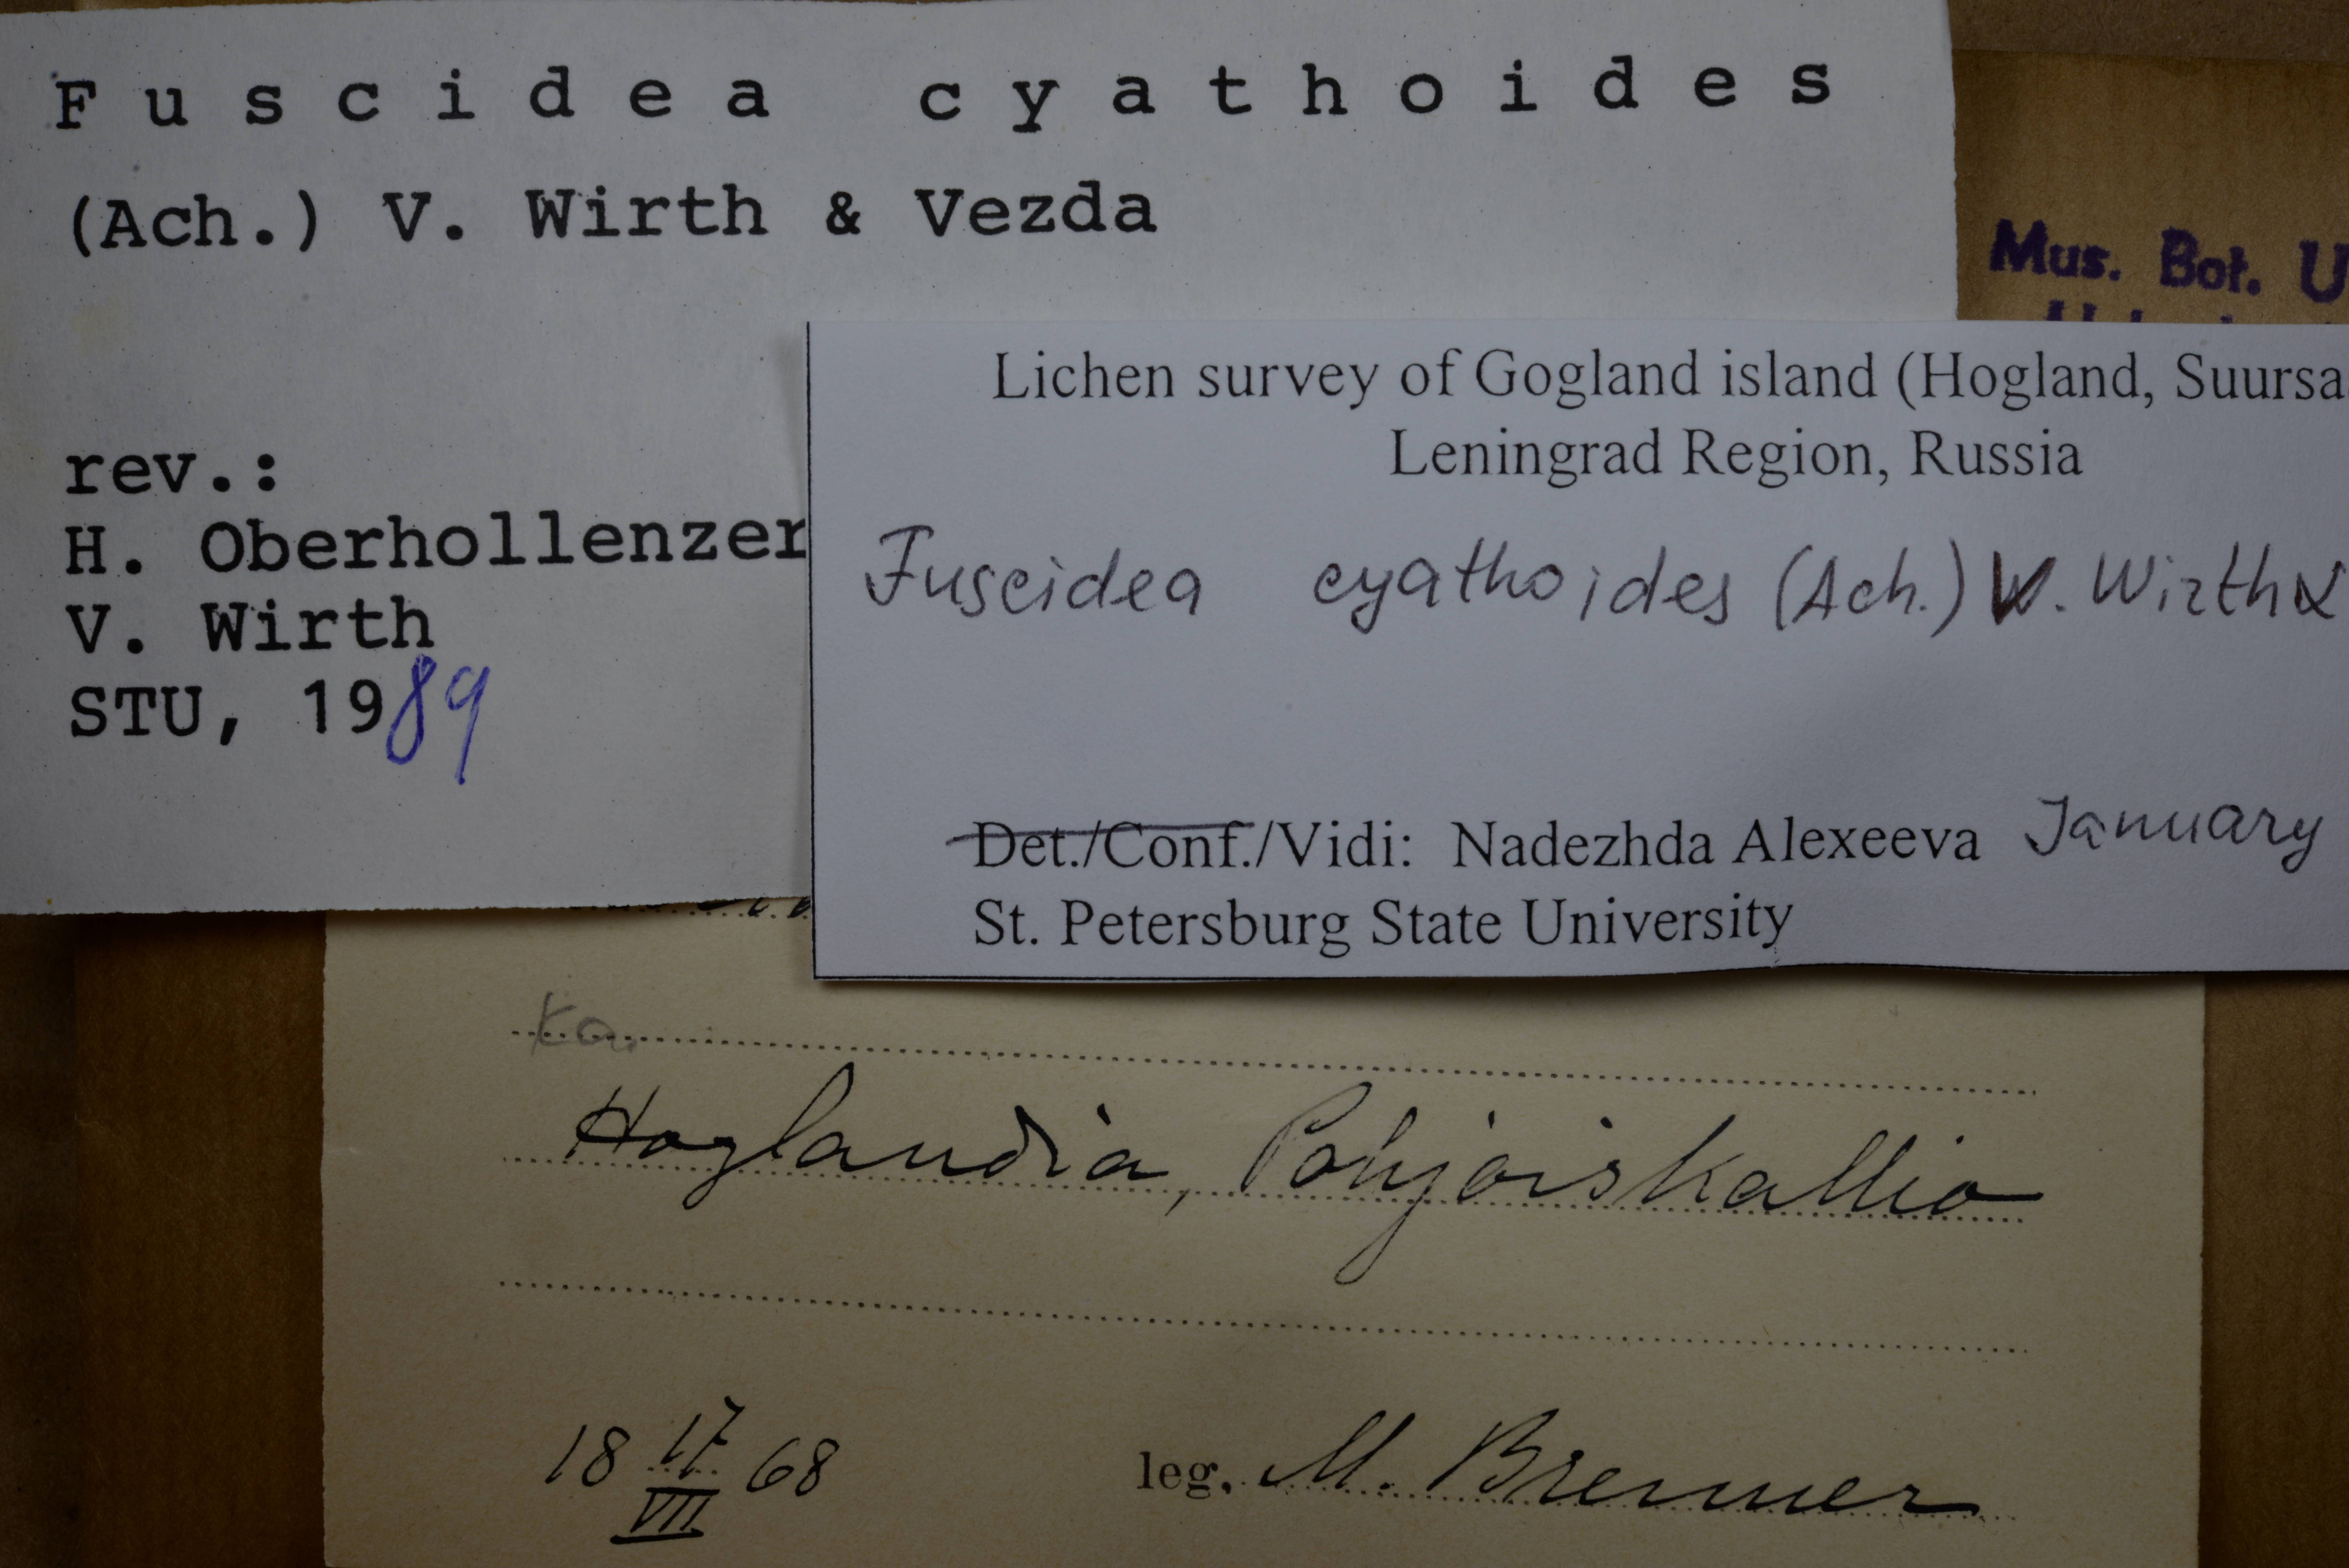 Fuscidea cyathoides
(Ach.) V. Wirth & Vezda
rev.:
H. Oberhollenzer
V. Wirth
STU, 1989
Mus. Bot. U
Lichen survey of Gogland island (Hogland, Suursa
Leningrad Region, Russia
Fuscidea cyathoides (Ach.) V. Wirth &
Det./Conf./Vidi: Nadezhda Alexeeva January
St. Petersburg State University
Ka.
Hoglandia, Pohjoiskallio
18 17/VII 68
leg. M. Brenner